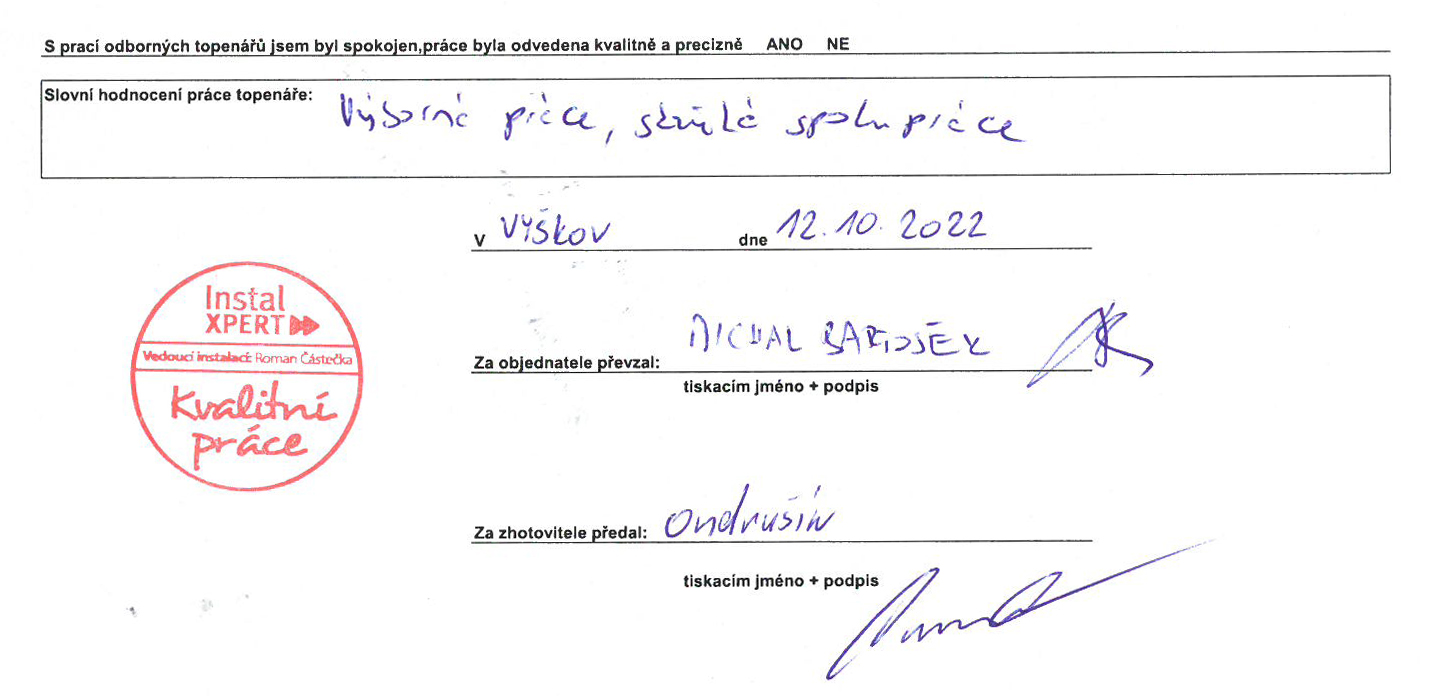 S prací odborných topenářů jsem byl spokojen,práce byla odvedena kvalitně a precizně ANO NE
Slovní hodnocení práce topenáře: Výborná práce, skvělá spolupráce
v VYŠKOV dne 12.10.2022
Instal
XPERT
Vedoucí instalací: Roman Částečka
Kvalitní
práce
Za objednatele převzal: MICHAL
tiskacím jméno + podpis
Za zhotovitele předal: Ondrušík
tiskacím jméno + podpis